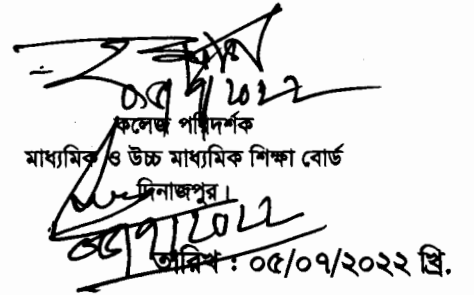 ০৫/৭/২০২২
কলেজ পরিদর্শক
মাধ্যমিক ও উচ্চ মাধ্যমিক শিক্ষা বোর্ড
দিনাজপুর।
০৫/৭/২০২২
তারিখ : ০৫/০৭/২০২২ খ্রি.